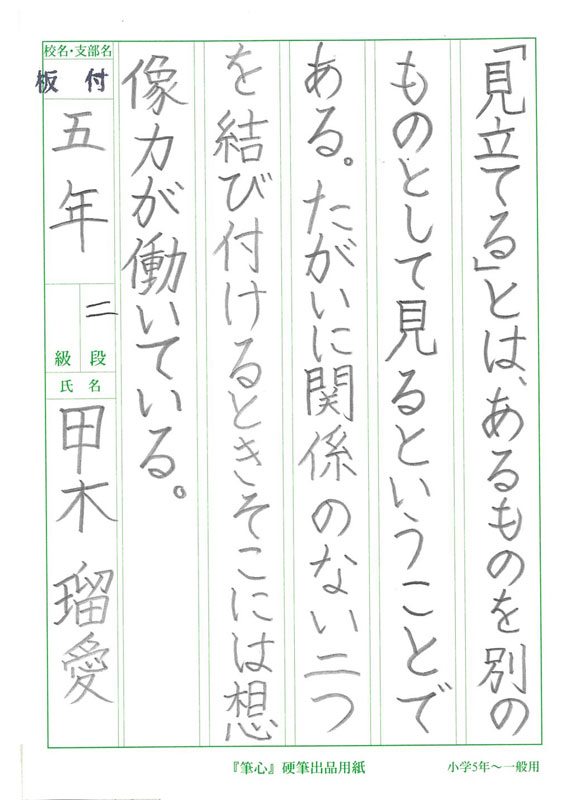 「見立てる」とは、あるものを別の
ものとして見るということで
ある。たがいに関係のない二つ
を結び付けるときそこには想
像力が働いている。
校名・支部名
板付
五年
二
級段
氏名
甲木瑠愛
『筆心』硬筆出品用紙
小学5年〜一般用